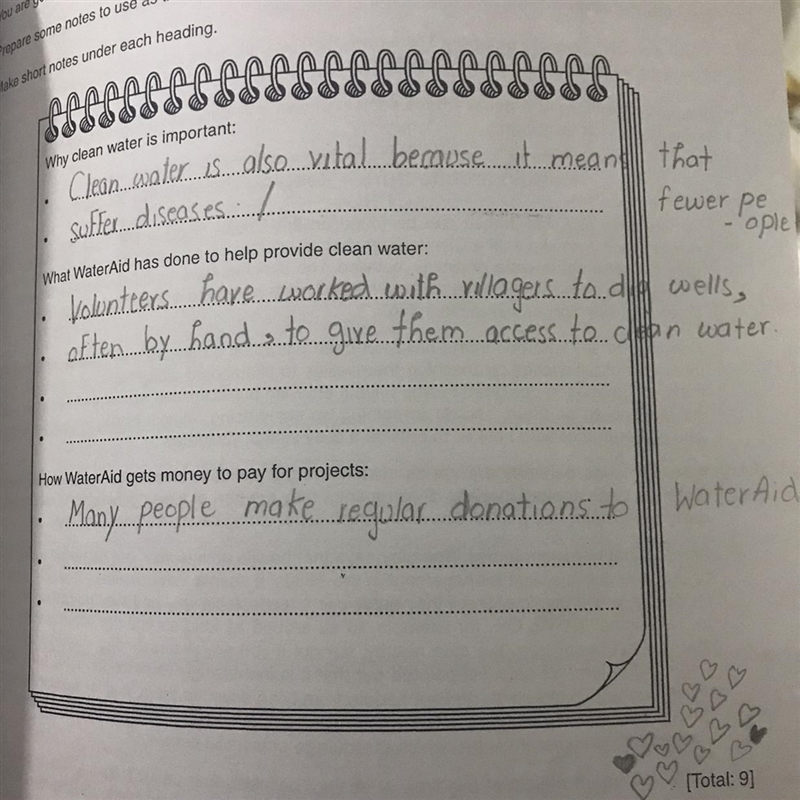 You are g
Prepare some notes to use as
Make short notes under each heading.
Why clean water is important:
• Clean water is also vital because it meant that
• suffer diseases. / fewer pe
- ople
What WaterAid has done to help provide clean water:
• Volunteers have worked with villagers to dig wells,
• often by hand, to give them access to clean water.
•
•
How WaterAid gets money to pay for projects:
• Many people make regular donations to WaterAid
•
•
[Total: 9]